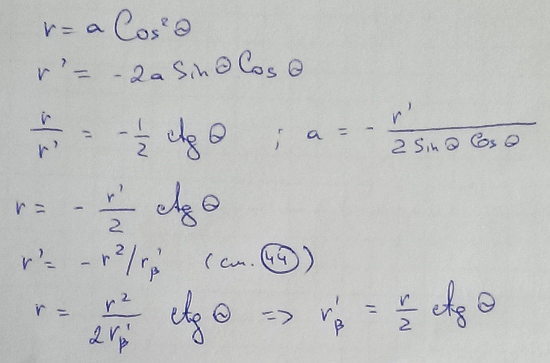 r = a Cos²θ
r' = -2a Sinθ Cosθ
r/r' = -1/2 ctg θ ; a = - r'/(2 Sinθ Cosθ)
r = - r'/2 ctg θ
r' = -r²/r'β (см. 44)
r = r²/(2r'β) ctg θ => r'β = r/2 ctg θ